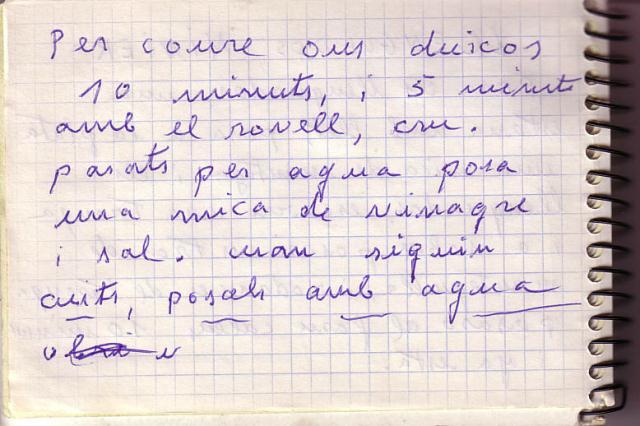 Per coure ous duicos
10 minuts, i 5 minuts
amb el rovell, cru.
pasats per agua posa
una mica de vinagre
i sal. uan siguin
cuits, posals amb agua